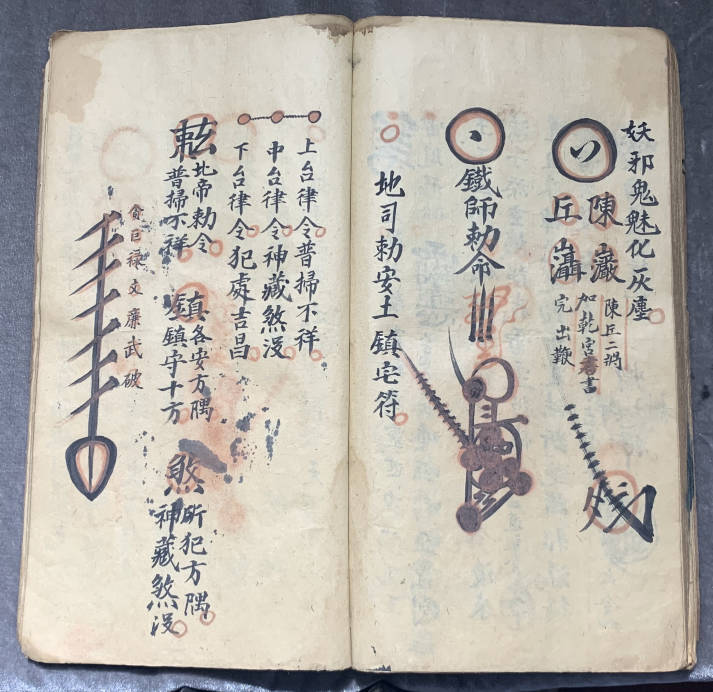 妖邪鬼魅化灰塵
陳
丘
陳丘二
加乾宮書
完出
鐵師勅命
地司勅安土鎮宅符
上台律令普掃不祥
中台律令神藏煞没
下台律令犯處吉昌
北帝勅令
普掃不祥
鎮
各安方隅
鎮守十方
煞
所犯方隅
神藏煞没
貪巨祿文廉武破